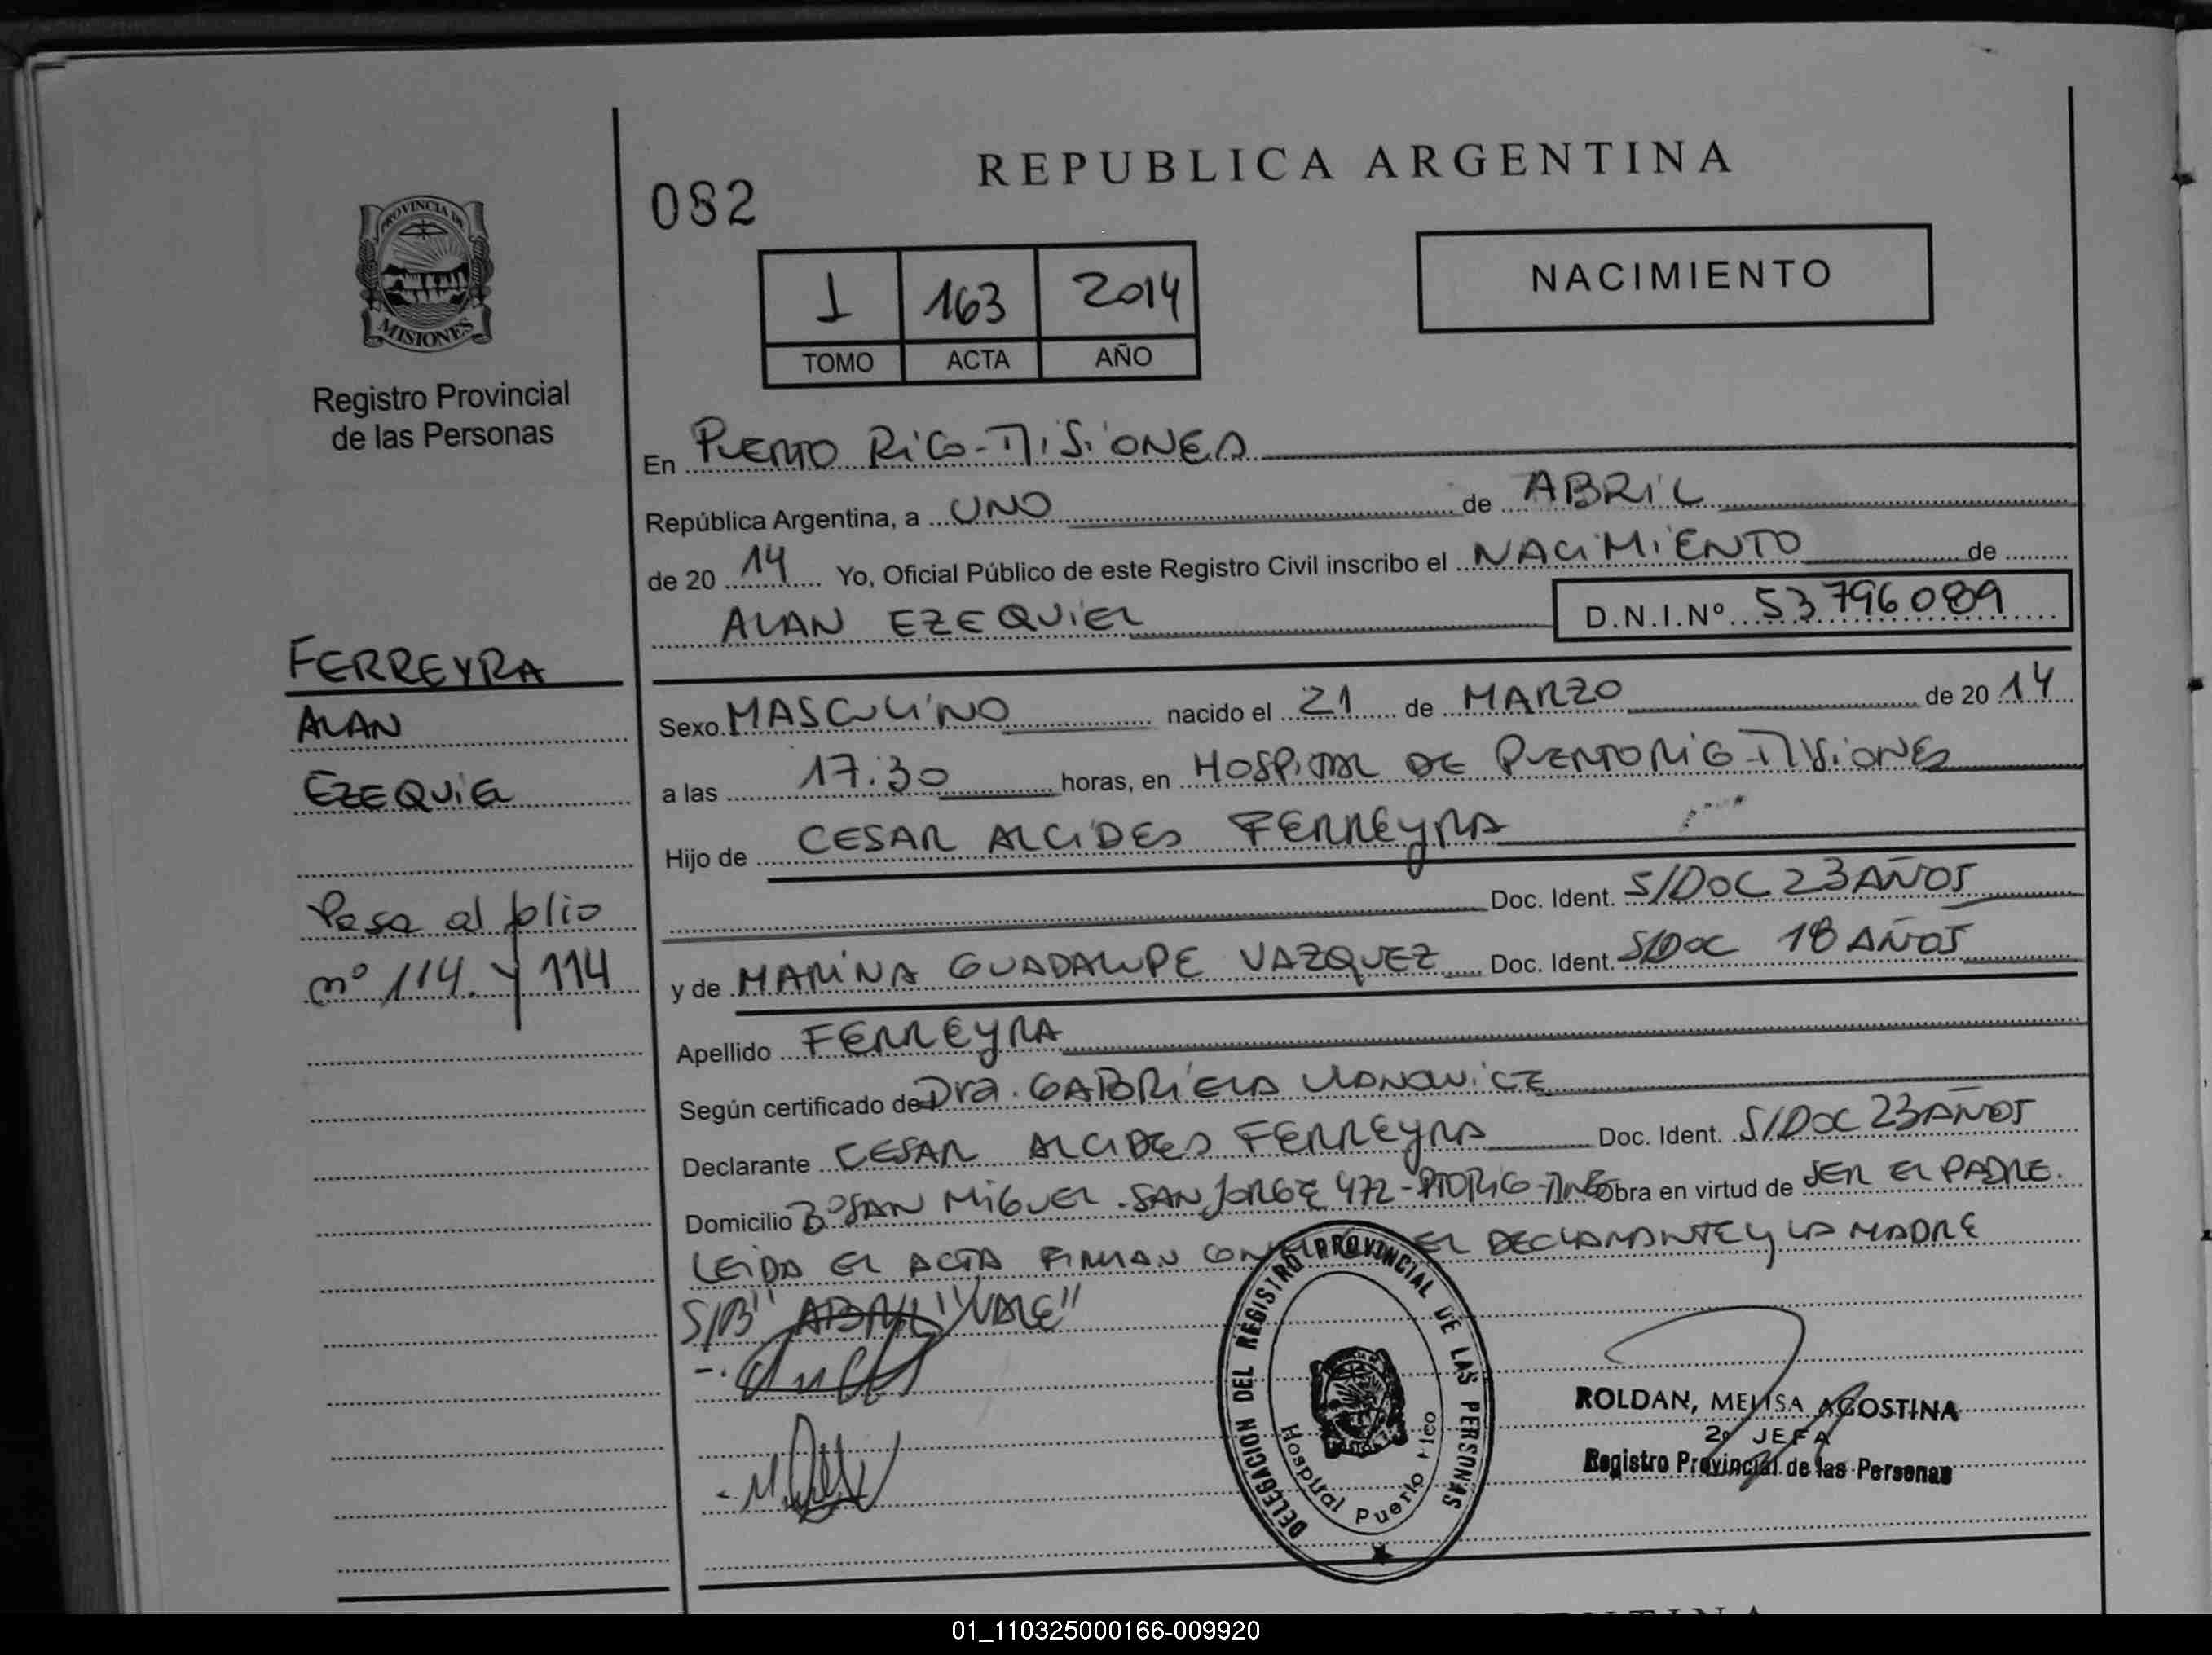 REPUBLICA ARGENTINA
082
NACIMIENTO
1 163 2014
TOMO ACTA AÑO
PROVINCIA DE
MISIONES
Registro Provincial
de las Personas
En PUERTO RICO-MISIONES
República Argentina, a UNO de ABRIL
de 20 14 Yo, Oficial Público de este Registro Civil inscribo el NACIMIENTO de
ALAN EZEQUIEL D.N.I.Nº 53796089
FERREYRA
ALAN
EZEQUIEL
Pasa al folio
nº 114. y 114
Sexo MASCULINO nacido el 21 de MARZO de 20 14
a las 17:30 horas, en HOSPITAL DE PUERTO RICO-MISIONES
Hijo de CESAR ALCIDES FERREYRA
Doc. Ident. S/DOC 23 AÑOS
y de MARINA GUADALUPE VAZQUEZ Doc. Ident. S/DOC 18 AÑOS
Apellido FERREYRA
Según certificado de Dra. GABRIELA
Declarante CESAR ALCIDES FERREYRA Doc. Ident. S/DOC 23 AÑOS
Domicilio Bº SAN MIGUEL - SAN JORGE 472 - PTO RICO - MNES Obra en virtud de SER EL PADRE.
LEIDA EL ACTA FIRMAN EL DECLARANTE Y LA MADRE
S/B "ABRIL" "VALE"
DELEGACION DEL REGISTRO PROVINCIAL DE LAS PERSONAS
Hospital Puerto Rico
ROLDAN, MELISA AGOSTINA
2º JEFA
Registro Provincial de las Personas
01_110325000166-009920